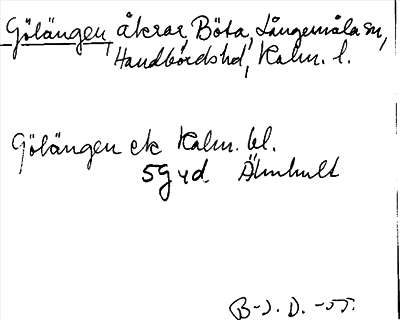 Gölängen, åkrar, Böta, Långemåla sn,
Handbördshd, Kalm. l.
Gölängen ek Kalm. bl.
5g yd. Älmhult
B-J. D. -55.